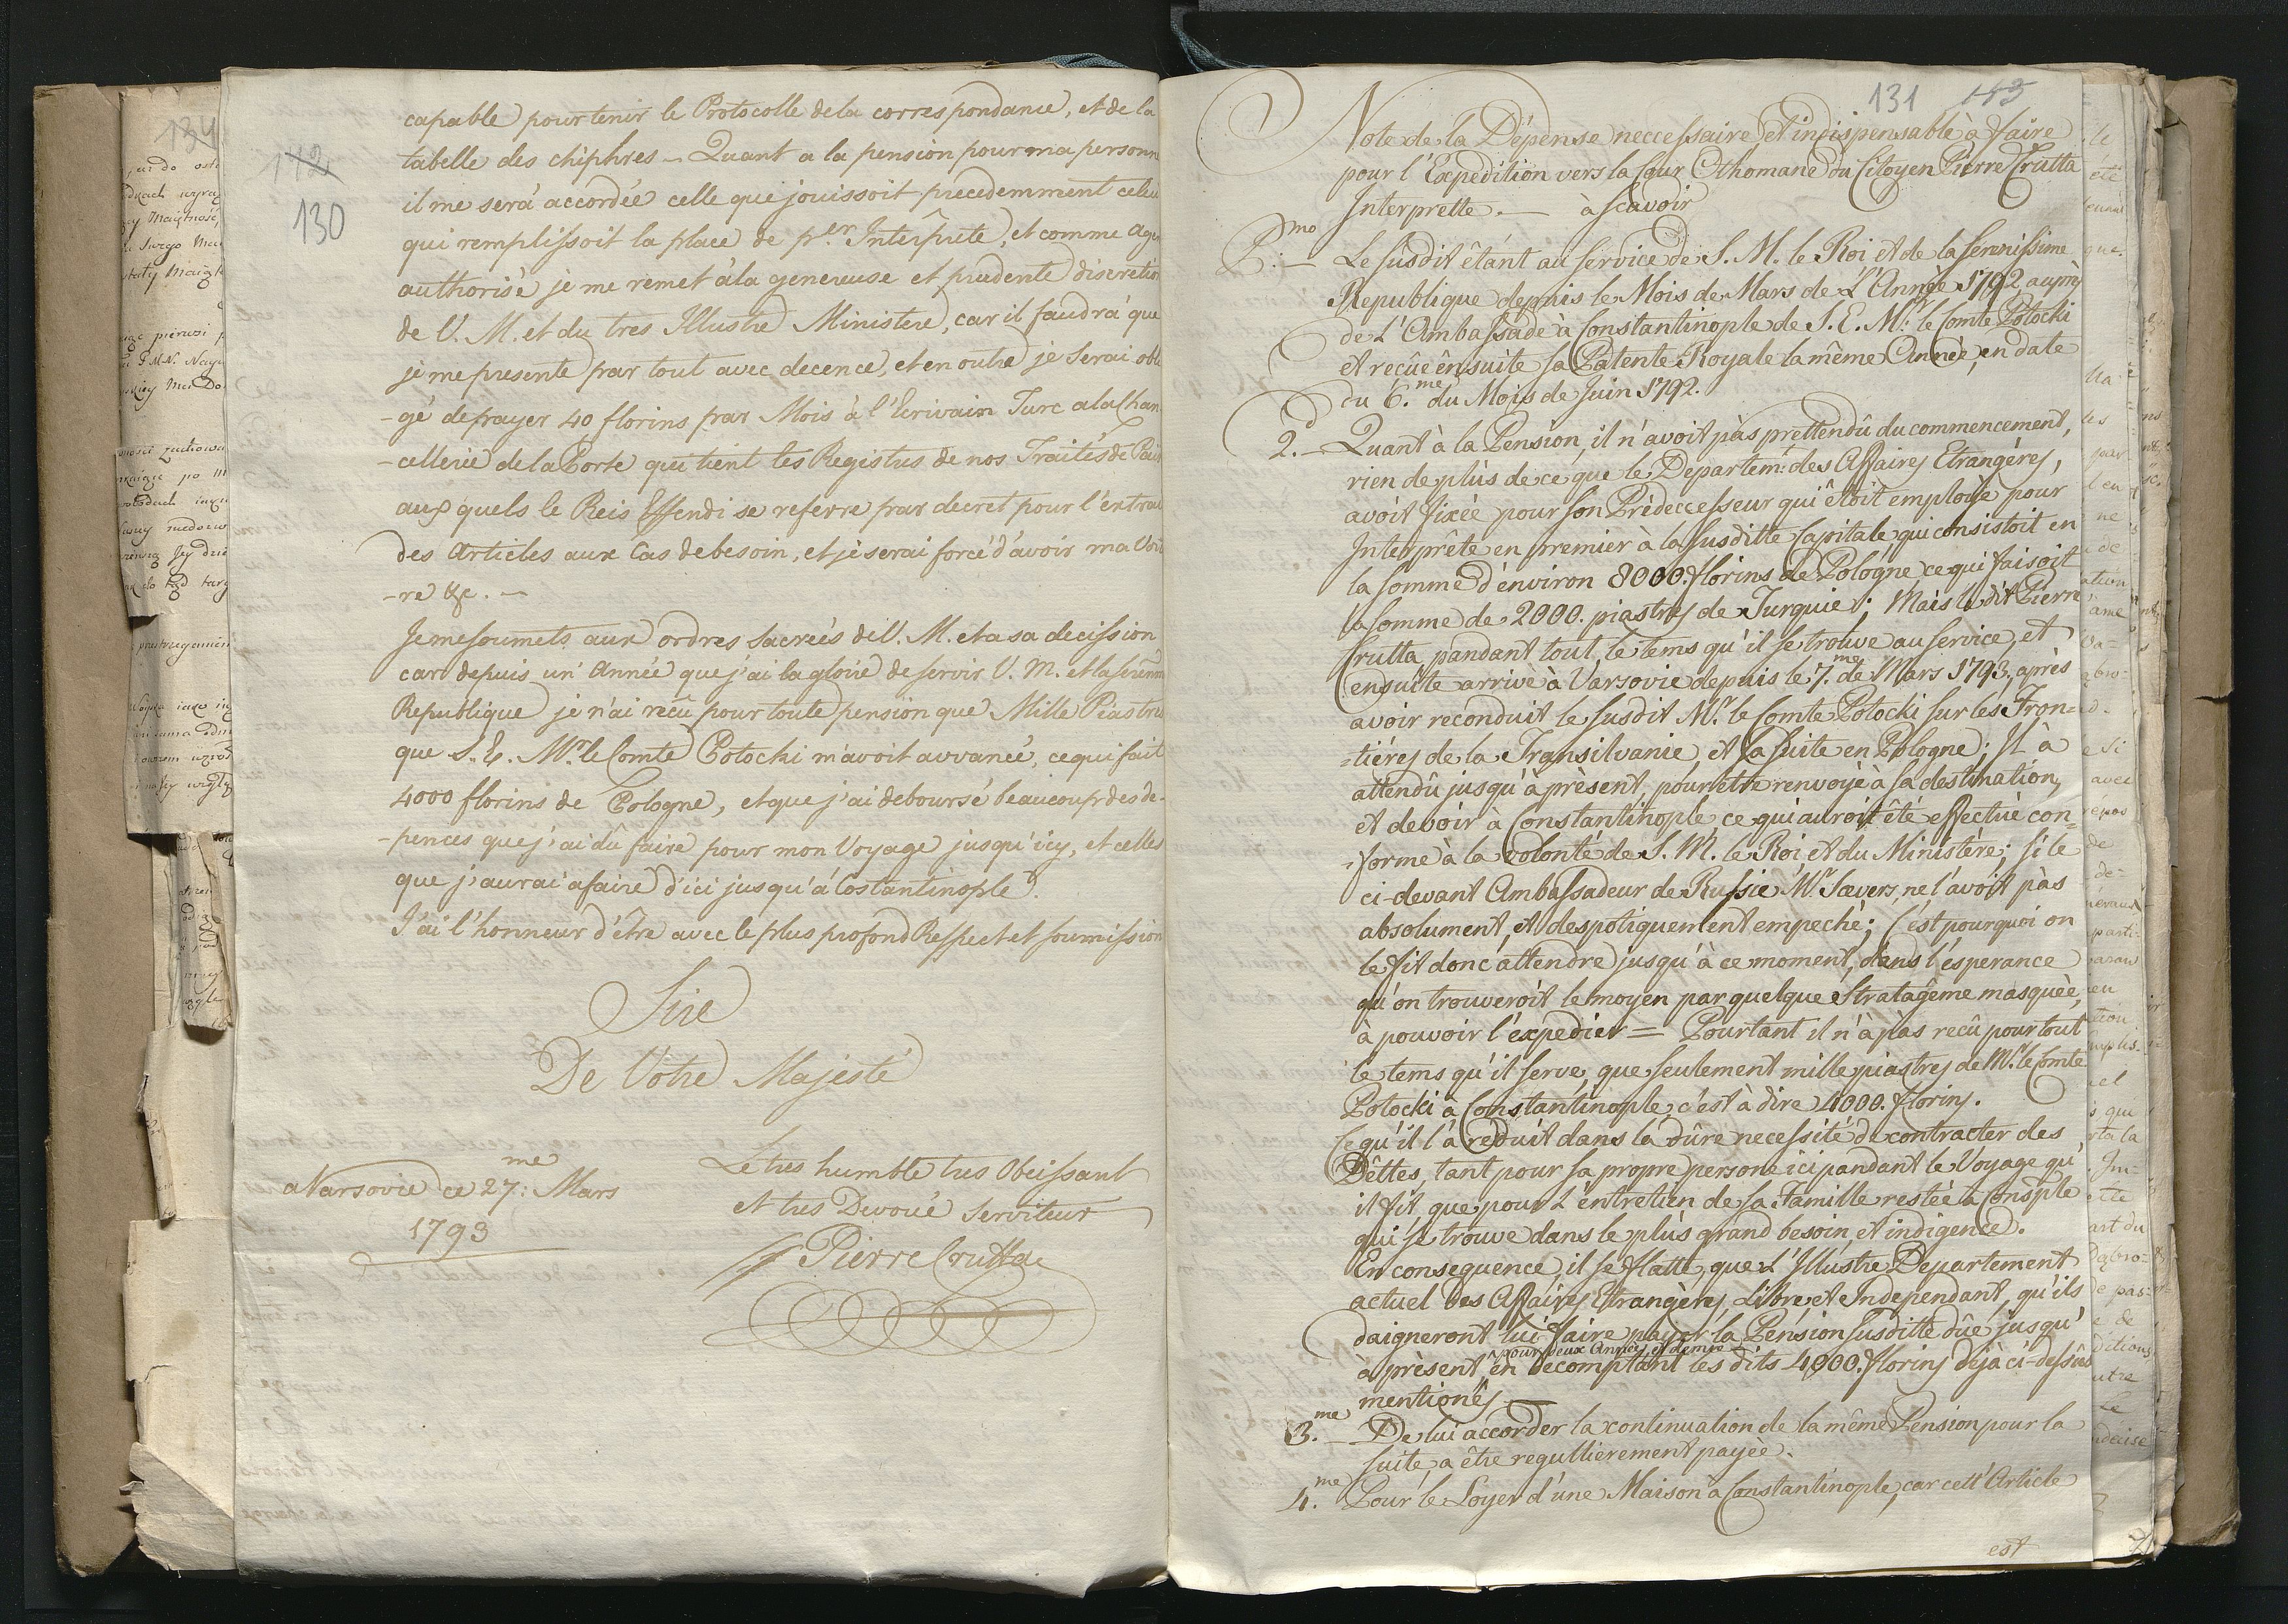 142
130
capable pour tenir le Protocolle de la correspondance, et de la
tabelle des chiphres — Quant a la pension pour ma personne
il me serà accordée celle que jouissoit precedemment celui
qui remplissoit la place de p.er Interprete, et comme
authorisé je me remet à la genereuse et prudente discretion
de V. M. et du tres Illustre Ministere, car il faudrà que
je me presente par tout avec decence, et en outre je serai obli
-gé de prayer 40 florins par Mois à l'Ecrivain Turc a la Chan
-cellerie de la Porte qui tient les Registres de nos Traités de Paix
aux quels le Reis Effendi se referre par decret pour l'
des Articles aux Cas de besoin, et je serai forcé d'avoir ma Voitu
-re &c. —
Je me soumets aux ordres sacreés de V. M. et a sa decission
car depuis un' Année que j'ai la gloire de servir V. M. et la
Republique je n'ai recû pour toute pension que Mille Piastres
que S. E. Mr. le Comte Potocki m'avoit avvancé, ce qui fait
4000 florins de Pologne, et que j'ai deboursé beaucoup des de-
-pences que j'ai dû faire pour mon Voyage jusqu'icy, et celles
que j'aurai a faire d'ici jusqu'á Costantinople.
J'ai l'honneur d'être avec le plus profond Respect et soumission
Sire
De Votre Majesté
Le tres humble tres Obeissant
et tres Devoué Serviteur
Pierre Crutta
a Varsovie ce 27:me Mars
1793
131 143
Note de la Dépense neccessaire, et indispensable à faire
pour l'Expedition vers la Cour Othomane du Citoyen Pierre Crutta
Interprette. — à scavoir
P:mo — Le susdit êtant au service de S. M. le Roi et de la serenissime
Republique depuis le Mois de Mars de L'Année 1792 auprès
de L'Ambassade à Constantinople de S. E. Mr: le Comte Potocki
et reçûe ênsuite sa Patente Royale la même Année, en date
du 6.me du Mois de Juin 1792.
2.d — Quant à la Pension, il n'avoit pàs prettendû du commencement,
rien de plùs de ce que le Departem: des Affaires Etrangéres,
avoit fixée pour son Prèdeccesseur qui êtoit emploïé pour
Interprête en premier à la susditte Capitale qui consistoit en
la somme d'environ 8000. florins de Pologne, ce qui faisoit
la somme de 2000. piastres de Turquie; Mais le dit Pierre
Crutta, pandant tout le tems qu'il se trouve au service, et
ensuite arrivè à Varsovie depuis le 7.me de Mars 1793, après
avoir reconduit le susdit Mr. le Comte Potocki sur les Fron-
-tiéres de la Transilvanie, et sa suite en Pologne; Il à
attendû jusqu'à prèsent, pour etre renvoyè à sa destination,
et devoir à Constantinople ce qui auroit êté effectué con-
-forme à la volonté de S. M. le Roi, et du Ministère; si le
ci-devant Ambassadeur de Russie Mr. Sievers, ne l'avoit pàs
absolument, et despotiquement empeché; C'est pourquoi on
le fit donc attendre jusqu'à ce moment, dans l'esperance
qu'on trouveroit le moyen par quelque Stratagême masquée,
à pouvoir l'expedier = Pourtant il n'à pàs recû pour tout
le tems qu'il serve, que seulement mille piastres de Mr. le Comte
Potocki à Constantinople, c'est à dire 4000. florins.
Ce qu'il l'à reduit dans la dûre necessité de contracter des
Dêttes, tant pour sa propre persone ici pandant le Voyage qu'
il fit, que pour L'entretien de sa Famille restée à Consple
qui se trouve dans le plùs grand besoin, et indigence.
En consequence, il se flatte, que L'Illustre Departement
actuel des Affaires Etrangères, Libre, et Independant, qu'ils
daigneront lui faire payer la Pension susditte dûe jusqu'
pour deux Années, et demie
à prèsent, en decomptant les dits 4000. florins dejà ci-dessûs
mentionês. —
3.me — De lui accorder la continuation de la même Pension pour la
suite, a être regullierement payée.
4.me Pour le Loyer d'une Maison à Constantinople, car cett' Article
est